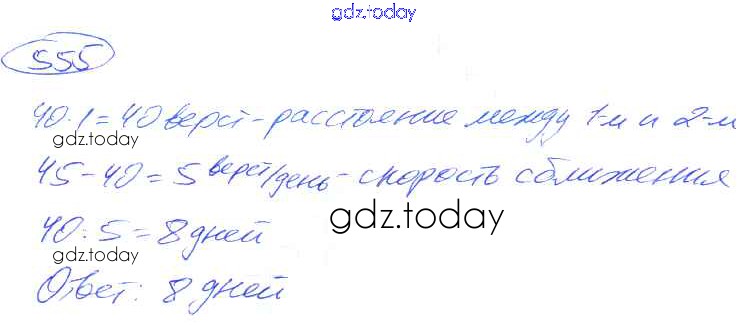 gdz.today
555
40·1=40 верст - расстояние между 1-м и 2-м
gdz.today
45-40=5 верст/день - скорость сближения
40:5=8 дней
gdz.today
gdz.today
Ответ: 8 дней